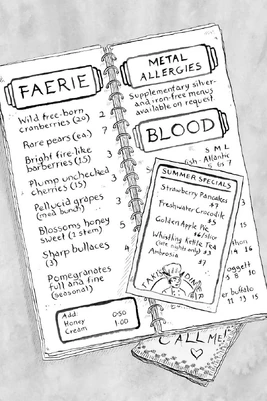 FAERIE
Wild free-born
cranberries (20) 2
Rare pears (ea.) 7
Bright fire-like
barberries (15) 3
Plump unchecked
cherries (15) 3
Pellucid grapes
(med bunch) 3
Blossoms honey
sweet (1 stem) 5
Sharp bullaces
(3) 4
Pomegranates
full and fine
(seasonal)
Add:
Honey 0.50
Cream 1.00
METAL
ALLERGIES
Supplementary silver-
and iron-free menus
available on request
BLOOD
S M L
fish - Atlantic
5 6 7
SUMMER SPECIALS
Strawberry Pancakes
$7
Freshwater Crocodile
$5
Golden Apple Pie
$6/slice
Whistling Kettle Tea
(late nights only) $3
Ambrosia
$7
buffalo
11 13 15
CALL ME!